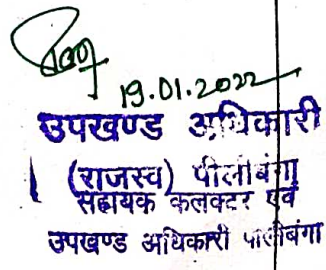 19.01.2022
उपखण्ड अधिकारी
(राजस्व) पीलीबंगा
सहायक कलक्टर एवं
उपखण्ड अधिकारी पीलीबंगा